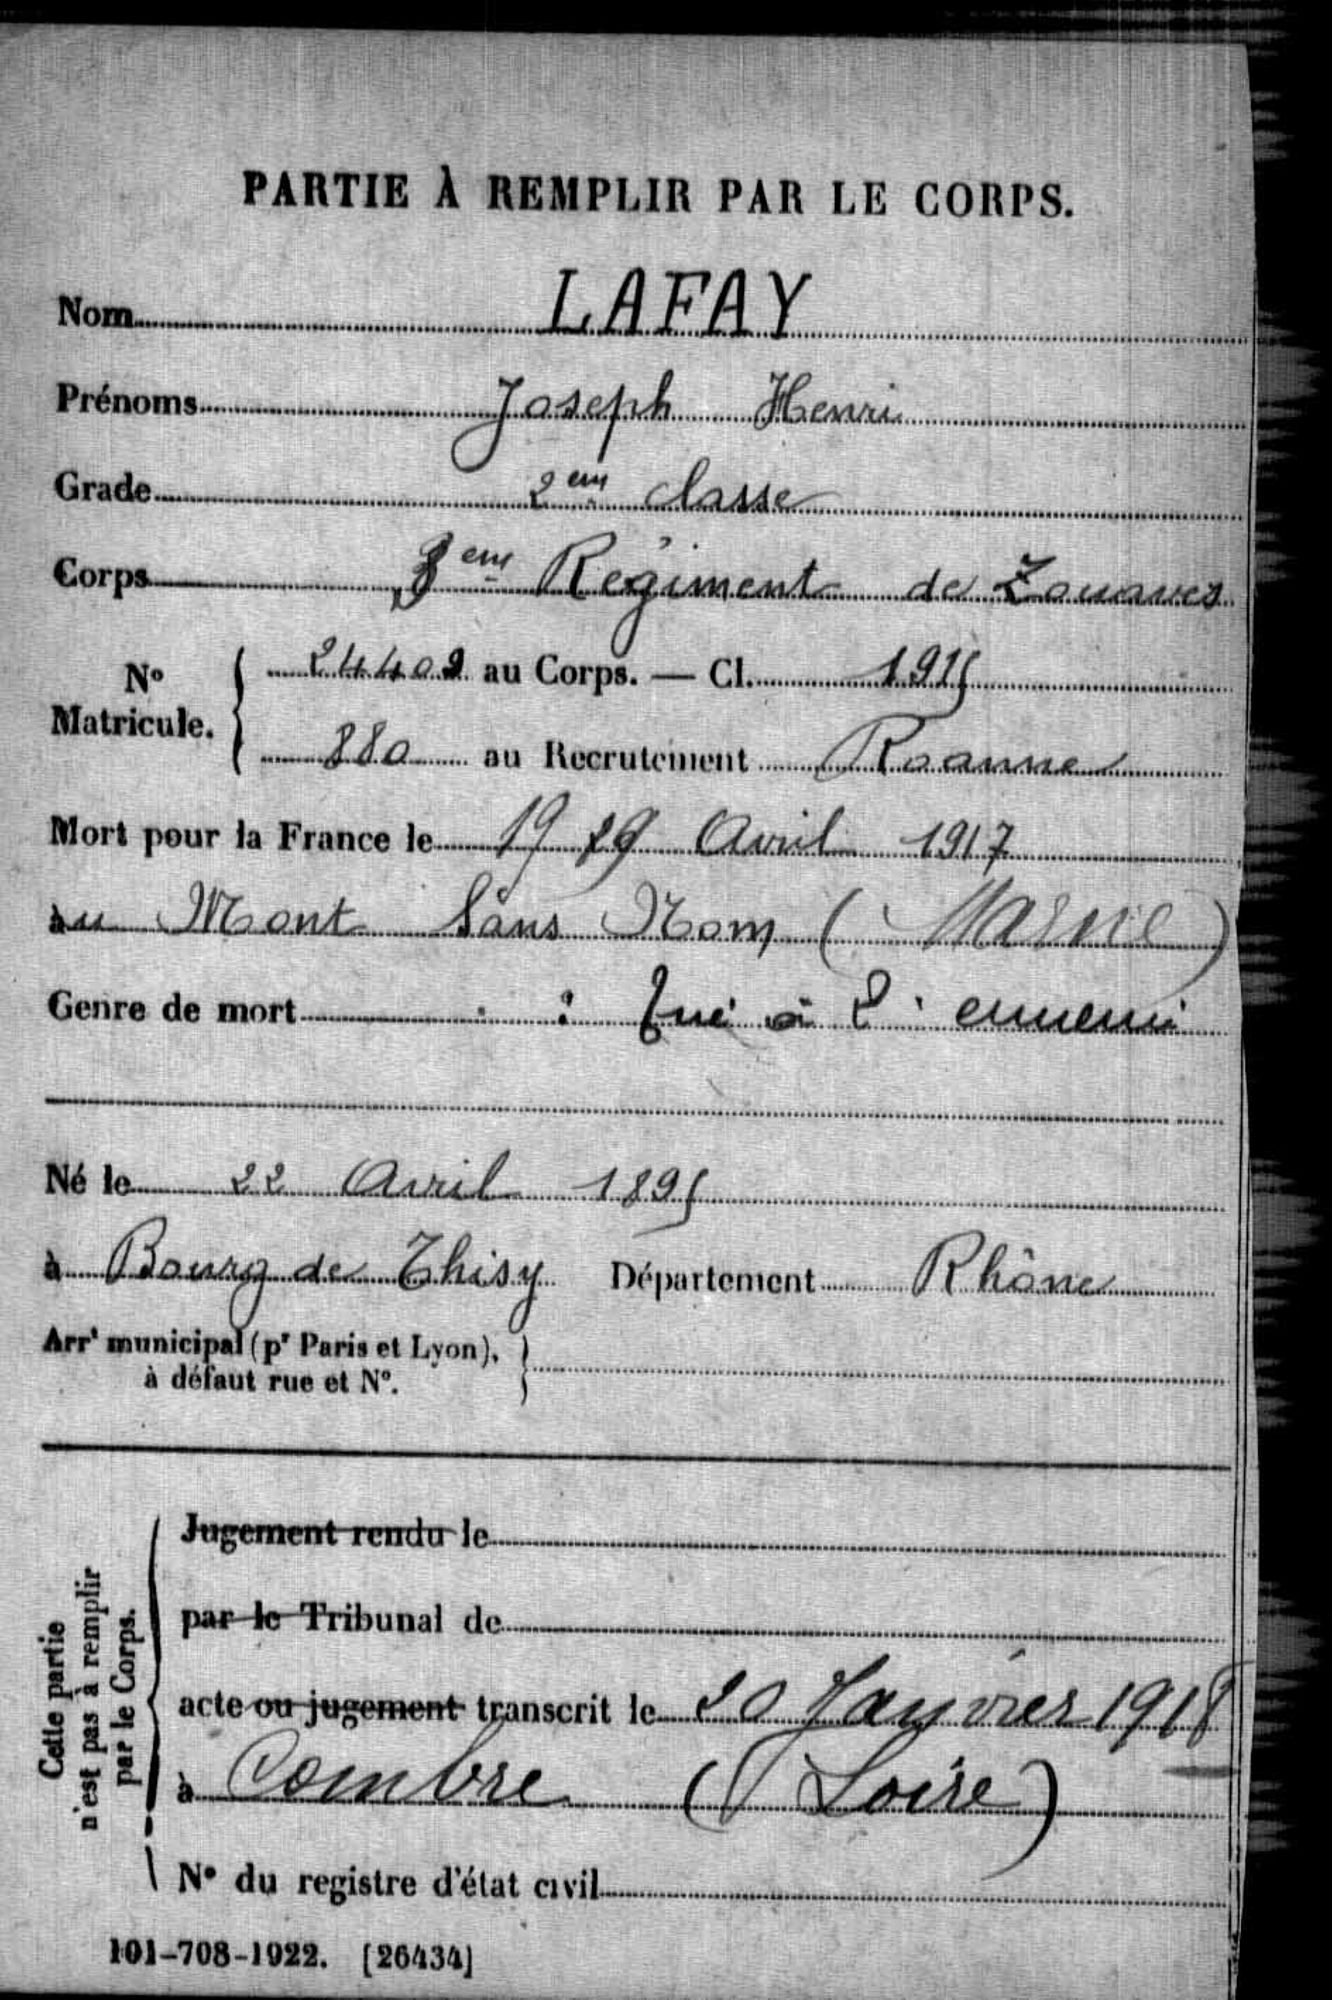 PARTIE À REMPLIR PAR LE CORPS.
Nom LAFAY
Prénoms Joseph Henri
Grade 2em classe
Corps 3eme Régiment de Zouaves
No Matricule. 24409 au Corps. — Cl. 1915
880 au Recrutement Roanne
Mort pour la France le 19 Avril 1917
au Mont Sans Nom (Marne)
Genre de mort : tué à l'ennemi
Né le 22 Avril 1895
à Bourg de Thisy Département Rhône
Arrt municipal (pr Paris et Lyon),
à défaut rue et No.
Cette partie
n'est pas à remplir
par le Corps.
Jugement rendu le
par le Tribunal de
acte ou jugement transcrit le 20 Janvier 1918
à Combre (Loire)
No du registre d'état civil
101-708-1922. [26434]